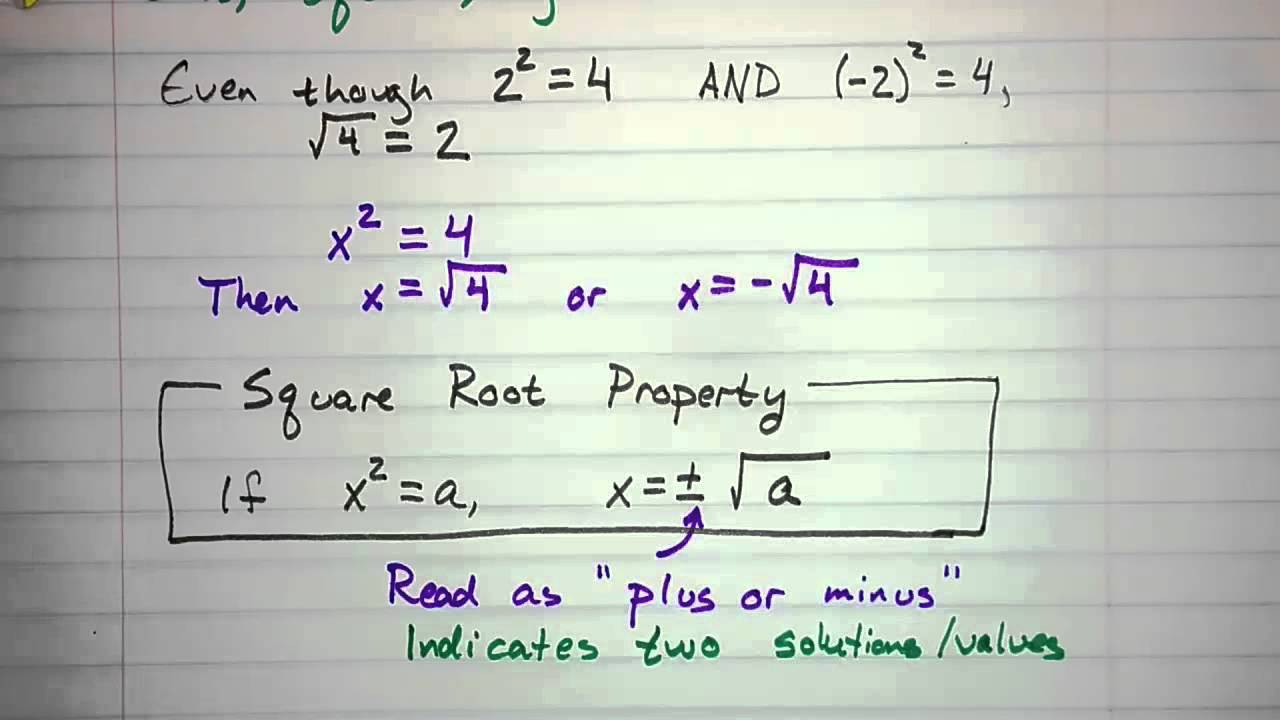 Even though 2² = 4 AND (-2)² = 4,
√4 = 2
x² = 4
Then x = √4 or x = -√4
Square Root Property
If x² = a, x = ± √a
Read as "plus or minus"
Indicates two solutions/values